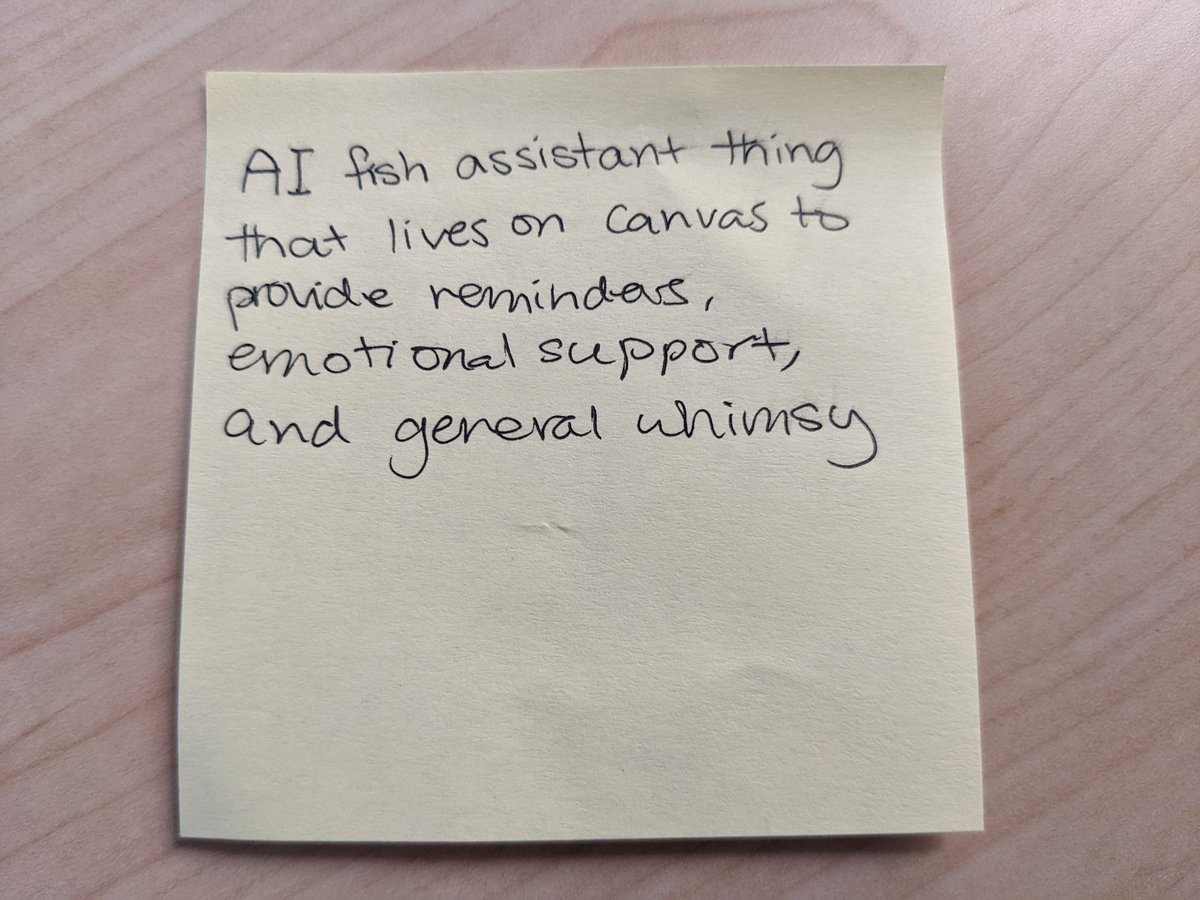 AI fish assistant thing
that lives on canvas to
provide reminders,
emotional support,
and general whimsy